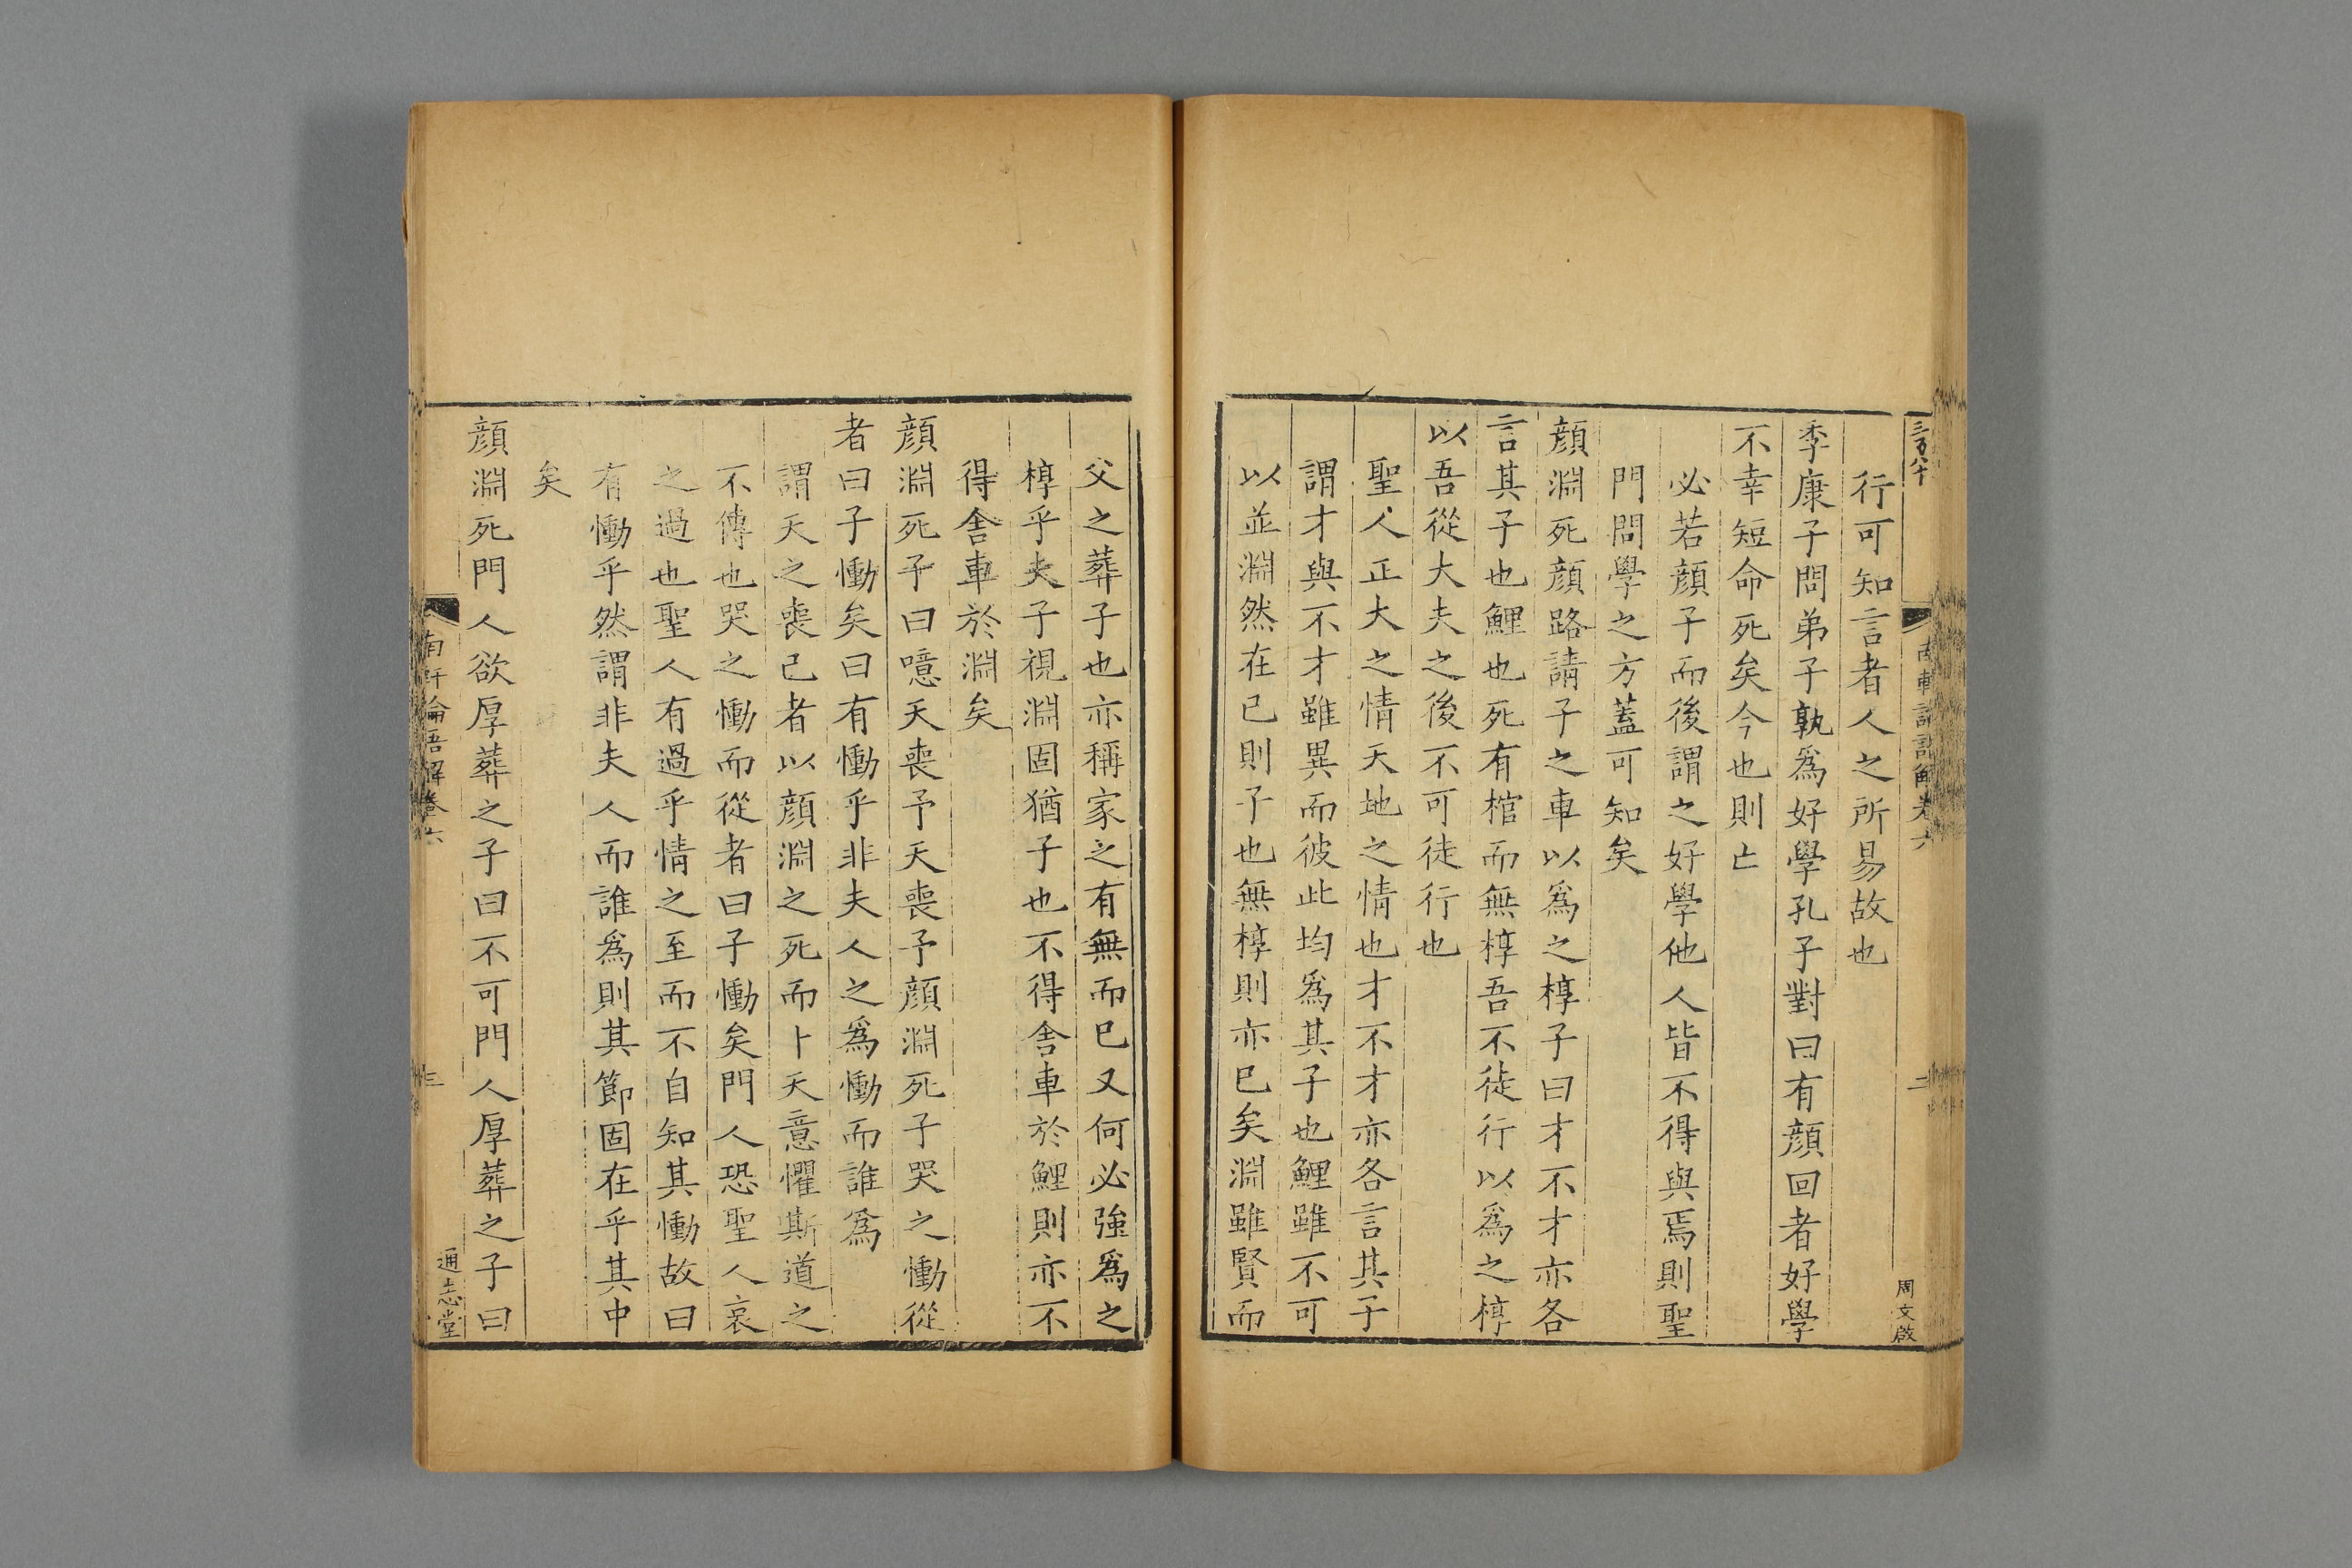 行可知言者人之所易故也
季康子問弟子孰爲好學孔子對曰有顏回者好學
不幸短命死矣今也則亡
必若顏子而後謂之好學他人皆不得與焉則聖
門問學之方蓋可知矣
顏淵死顏路請子之車以爲之椁子曰才不才亦各
言其子也鯉也死有棺而無椁吾不徒行以爲之椁
以吾從大夫之後不可徒行也
聖人正大之情天地之情也才不才亦各言其子
謂才與不才雖異而彼此均爲其子也鯉雖不可
以並淵然在已則子也無椁則亦已矣淵雖賢而
周文啟
父之葬子也亦稱家之有無而已又何必強爲之
椁乎夫子視淵固猶子也不得舍車於鯉則亦不
得舍車於淵矣
顏淵死子曰噫天喪予天喪予顏淵死子哭之慟從
者曰子慟矣曰有慟乎非夫人之爲慟而誰爲
謂天之喪已者以顏淵之死而卜天意懼斯道之
不傳也哭之慟而從者曰子慟矣門人恐聖人哀
之過也聖人有過乎情之至而不自知其慟故曰
有慟乎然謂非夫人而誰爲則其節固在乎其中
矣
顏淵死門人欲厚葬之子曰不可門人厚葬之子曰
南軒論語解卷六 三
通志堂